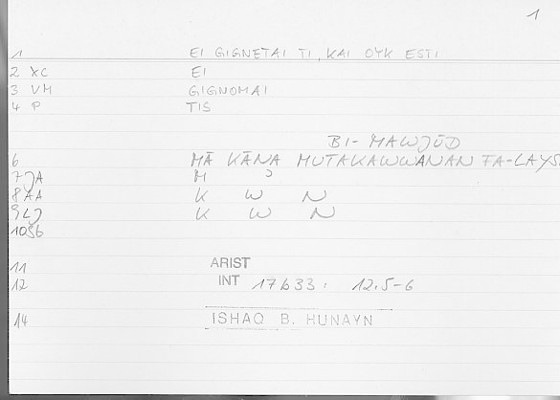 1
1 EI GIGNETAI TI, KAI OYK ESTI
2 XC EI
3 VM GIGNOMAI
4 P TIS
BI-MAWJŪD
6 MĀ KĀNA MUTAKAWWANAN FA-LAYS
7 JA M ʾ
8 AA K W N
9 LJ K W N
10 SB
11 ARIST
12 INT 17b33; 12.5-6
14 ISHAQ B. HUNAYN